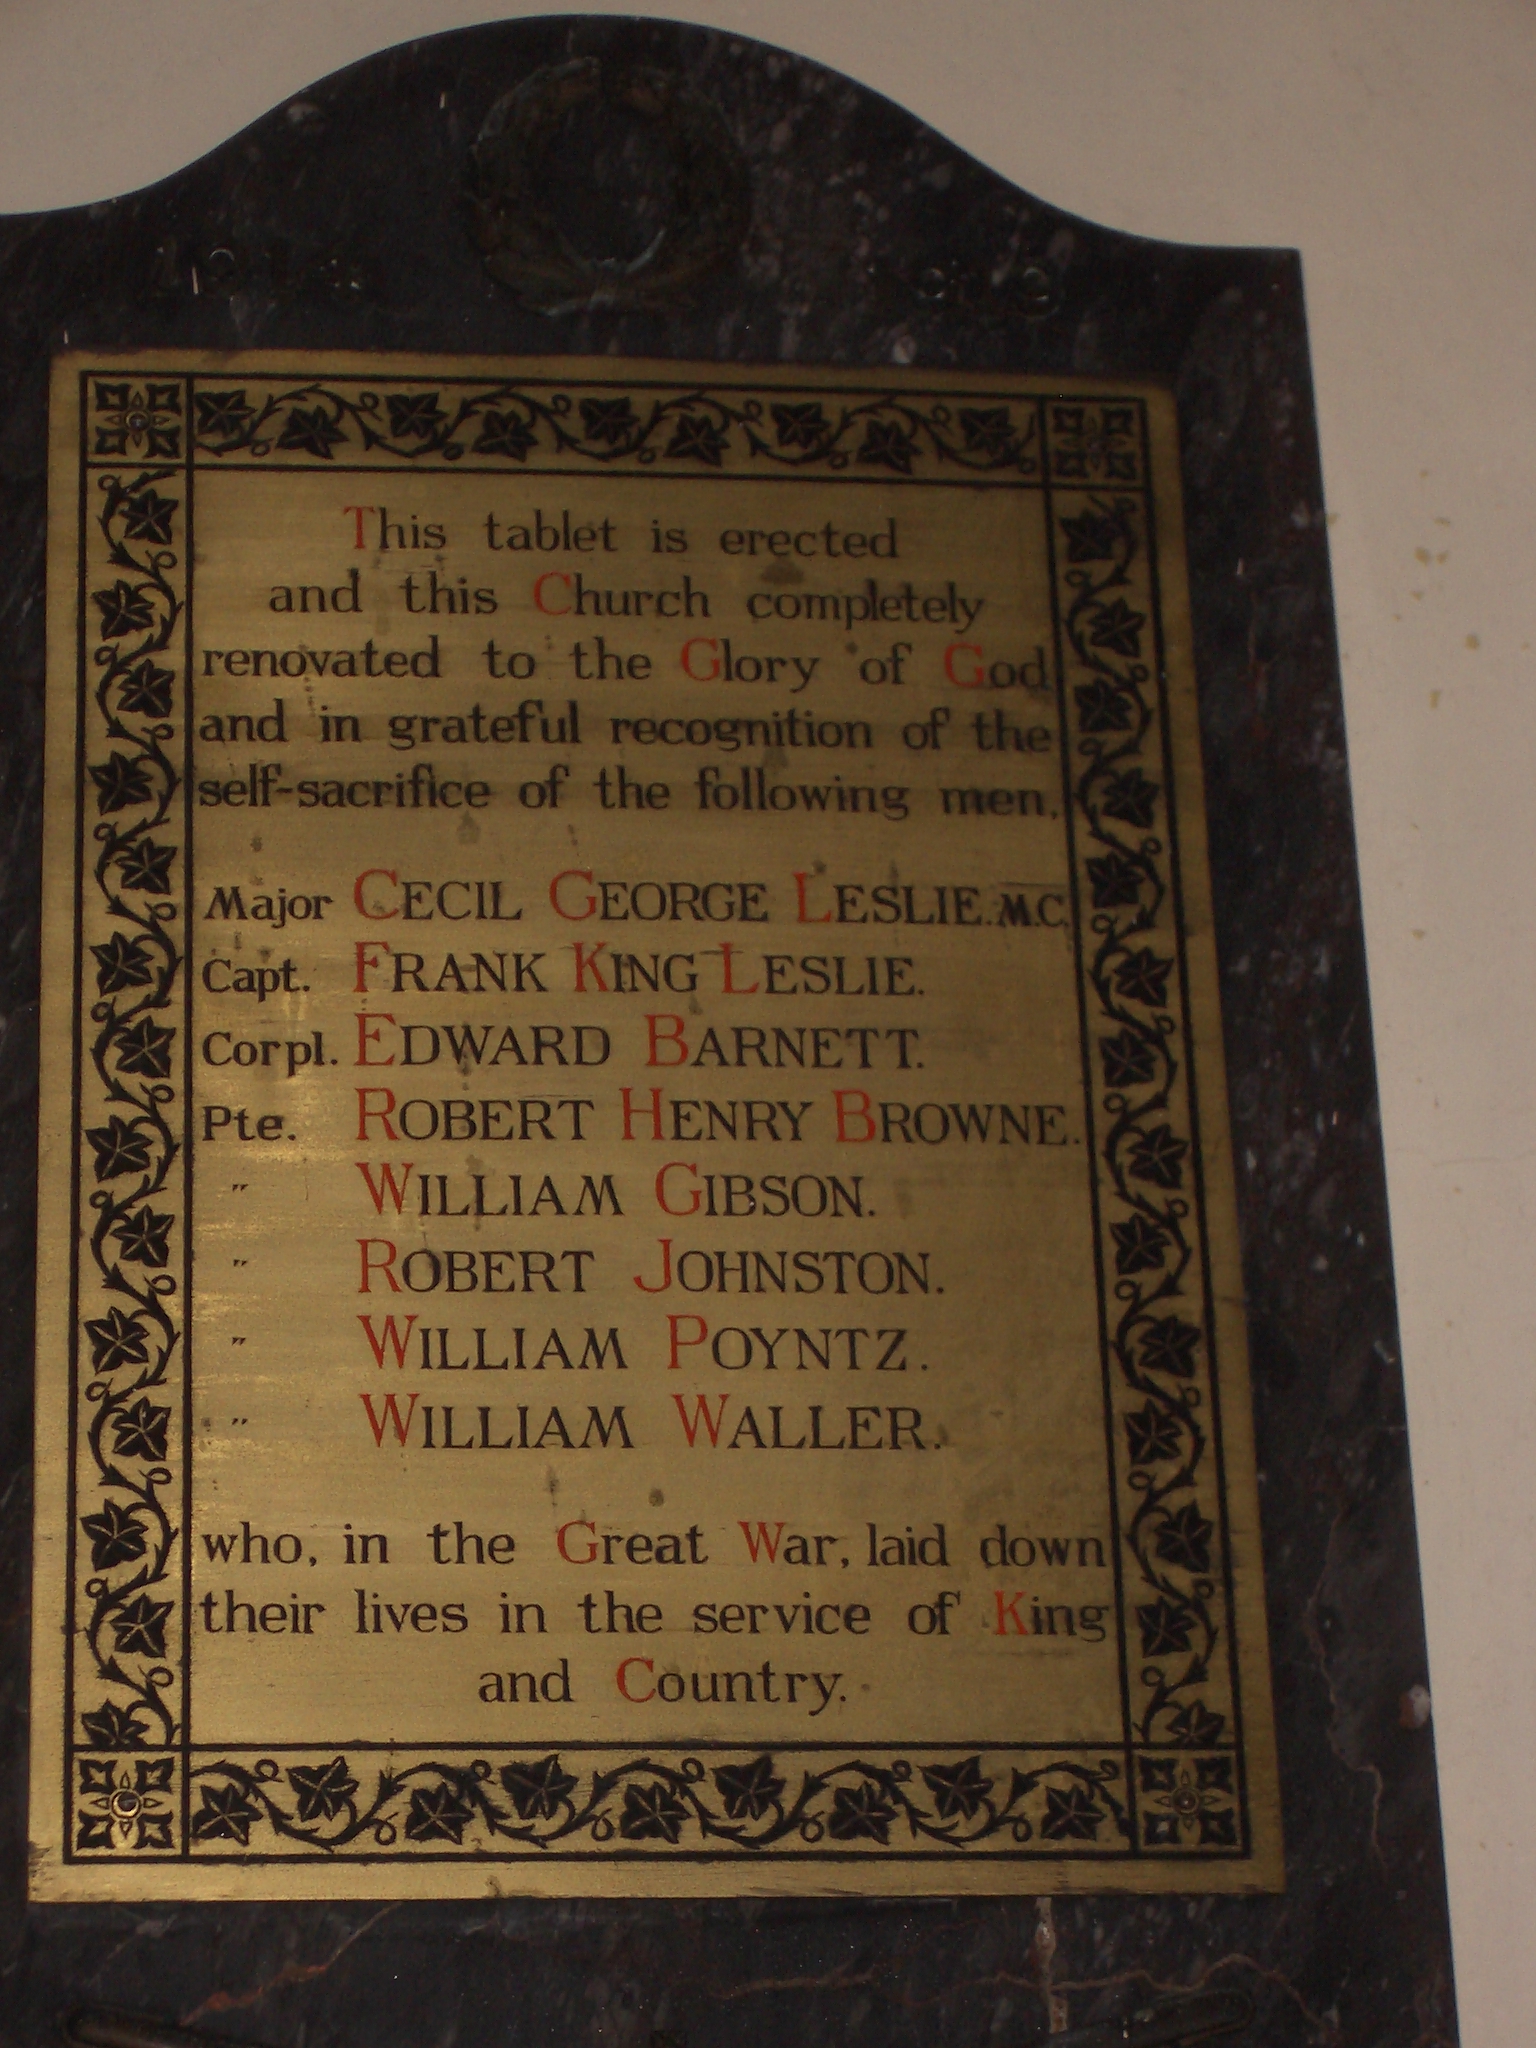 1914 1918
This tablet is erected
and this Church completely
renovated to the Glory of God
and in grateful recognition of the
self-sacrifice of the following men,
Major CECIL GEORGE LESLIE. M.C.
Capt. FRANK KING LESLIE.
Corpl. EDWARD BARNETT.
Pte. ROBERT HENRY BROWNE.
" WILLIAM GIBSON.
" ROBERT JOHNSTON.
" WILLIAM POYNTZ.
" WILLIAM WALLER.
who, in the Great War, laid down
their lives in the service of King
and Country.